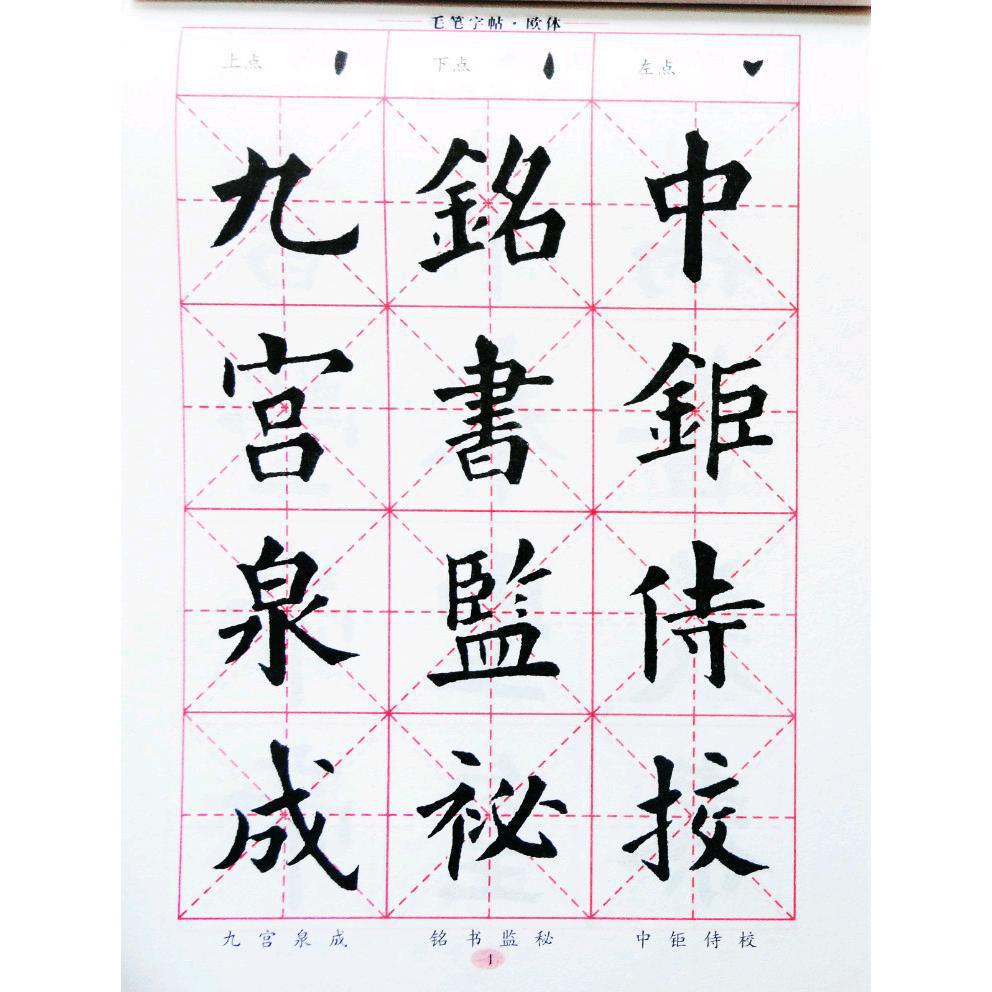 毛笔字帖·欧体
上点
下点
左点
九宫泉成
銘書監祕
中鉅侍挍
九宫泉成
铭书监秘
中钜侍校
1